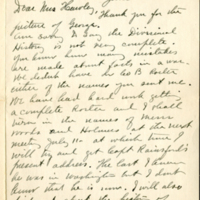 Dear Miss Hawley,
Thank you for the
picture of George.
Am sorry to say the Divisional
History is not very complete
you know how many mistakes
are made about facts in a war.
We do not have his Co B Roster
either of the names you sent me.
We have had hard work getting
a complete Roster and I shall
turn in the names of
Woods and Holmes at the next
meeting July 11 at which time I
will try and get Capt Rainsford's
present address. The last I knew
he was in Washington but I dont
know that he is now. I will also